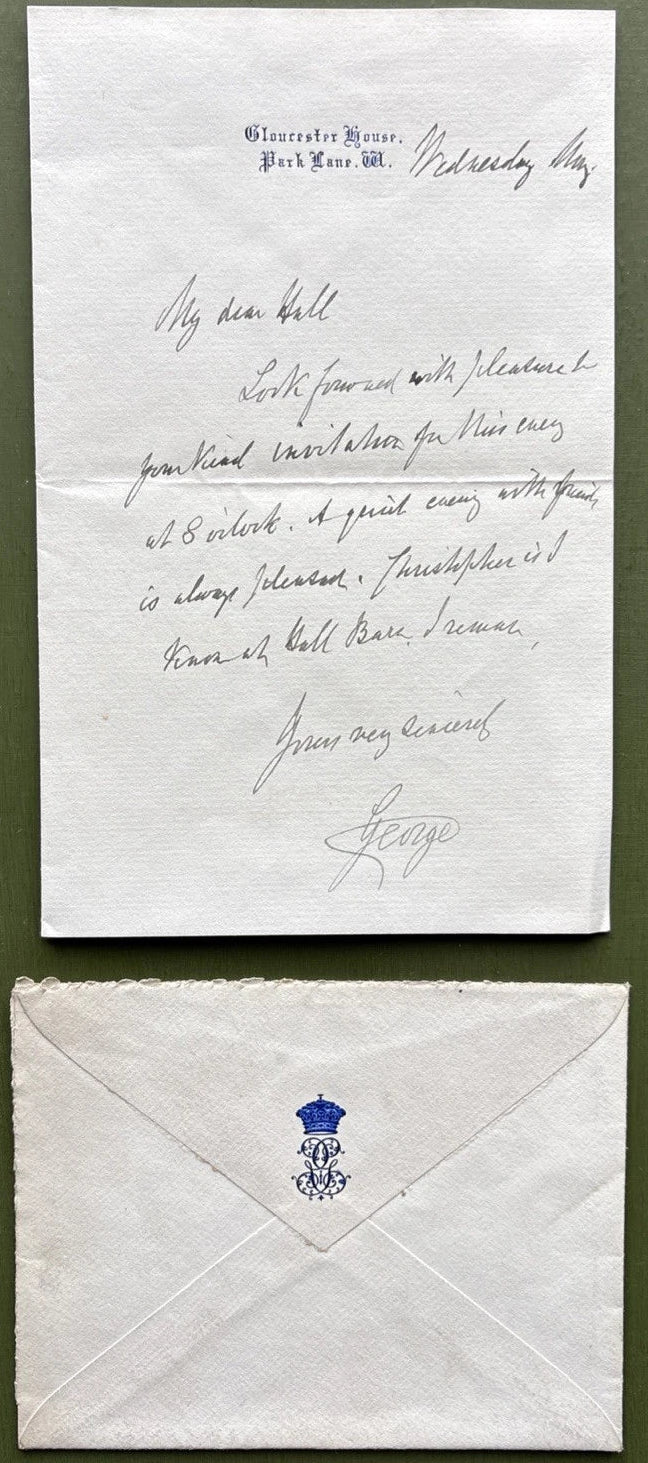 Gloucester House.
Park Lane. W. Wednesday
My dear Hall
Look forward with pleasure to
your kind invitation for this eveng
at 8 o'clock. A quiet eveng with friends
is always pleasant. Christopher is I
know at Hall Barn. I remain,
Yours very sincerely
George